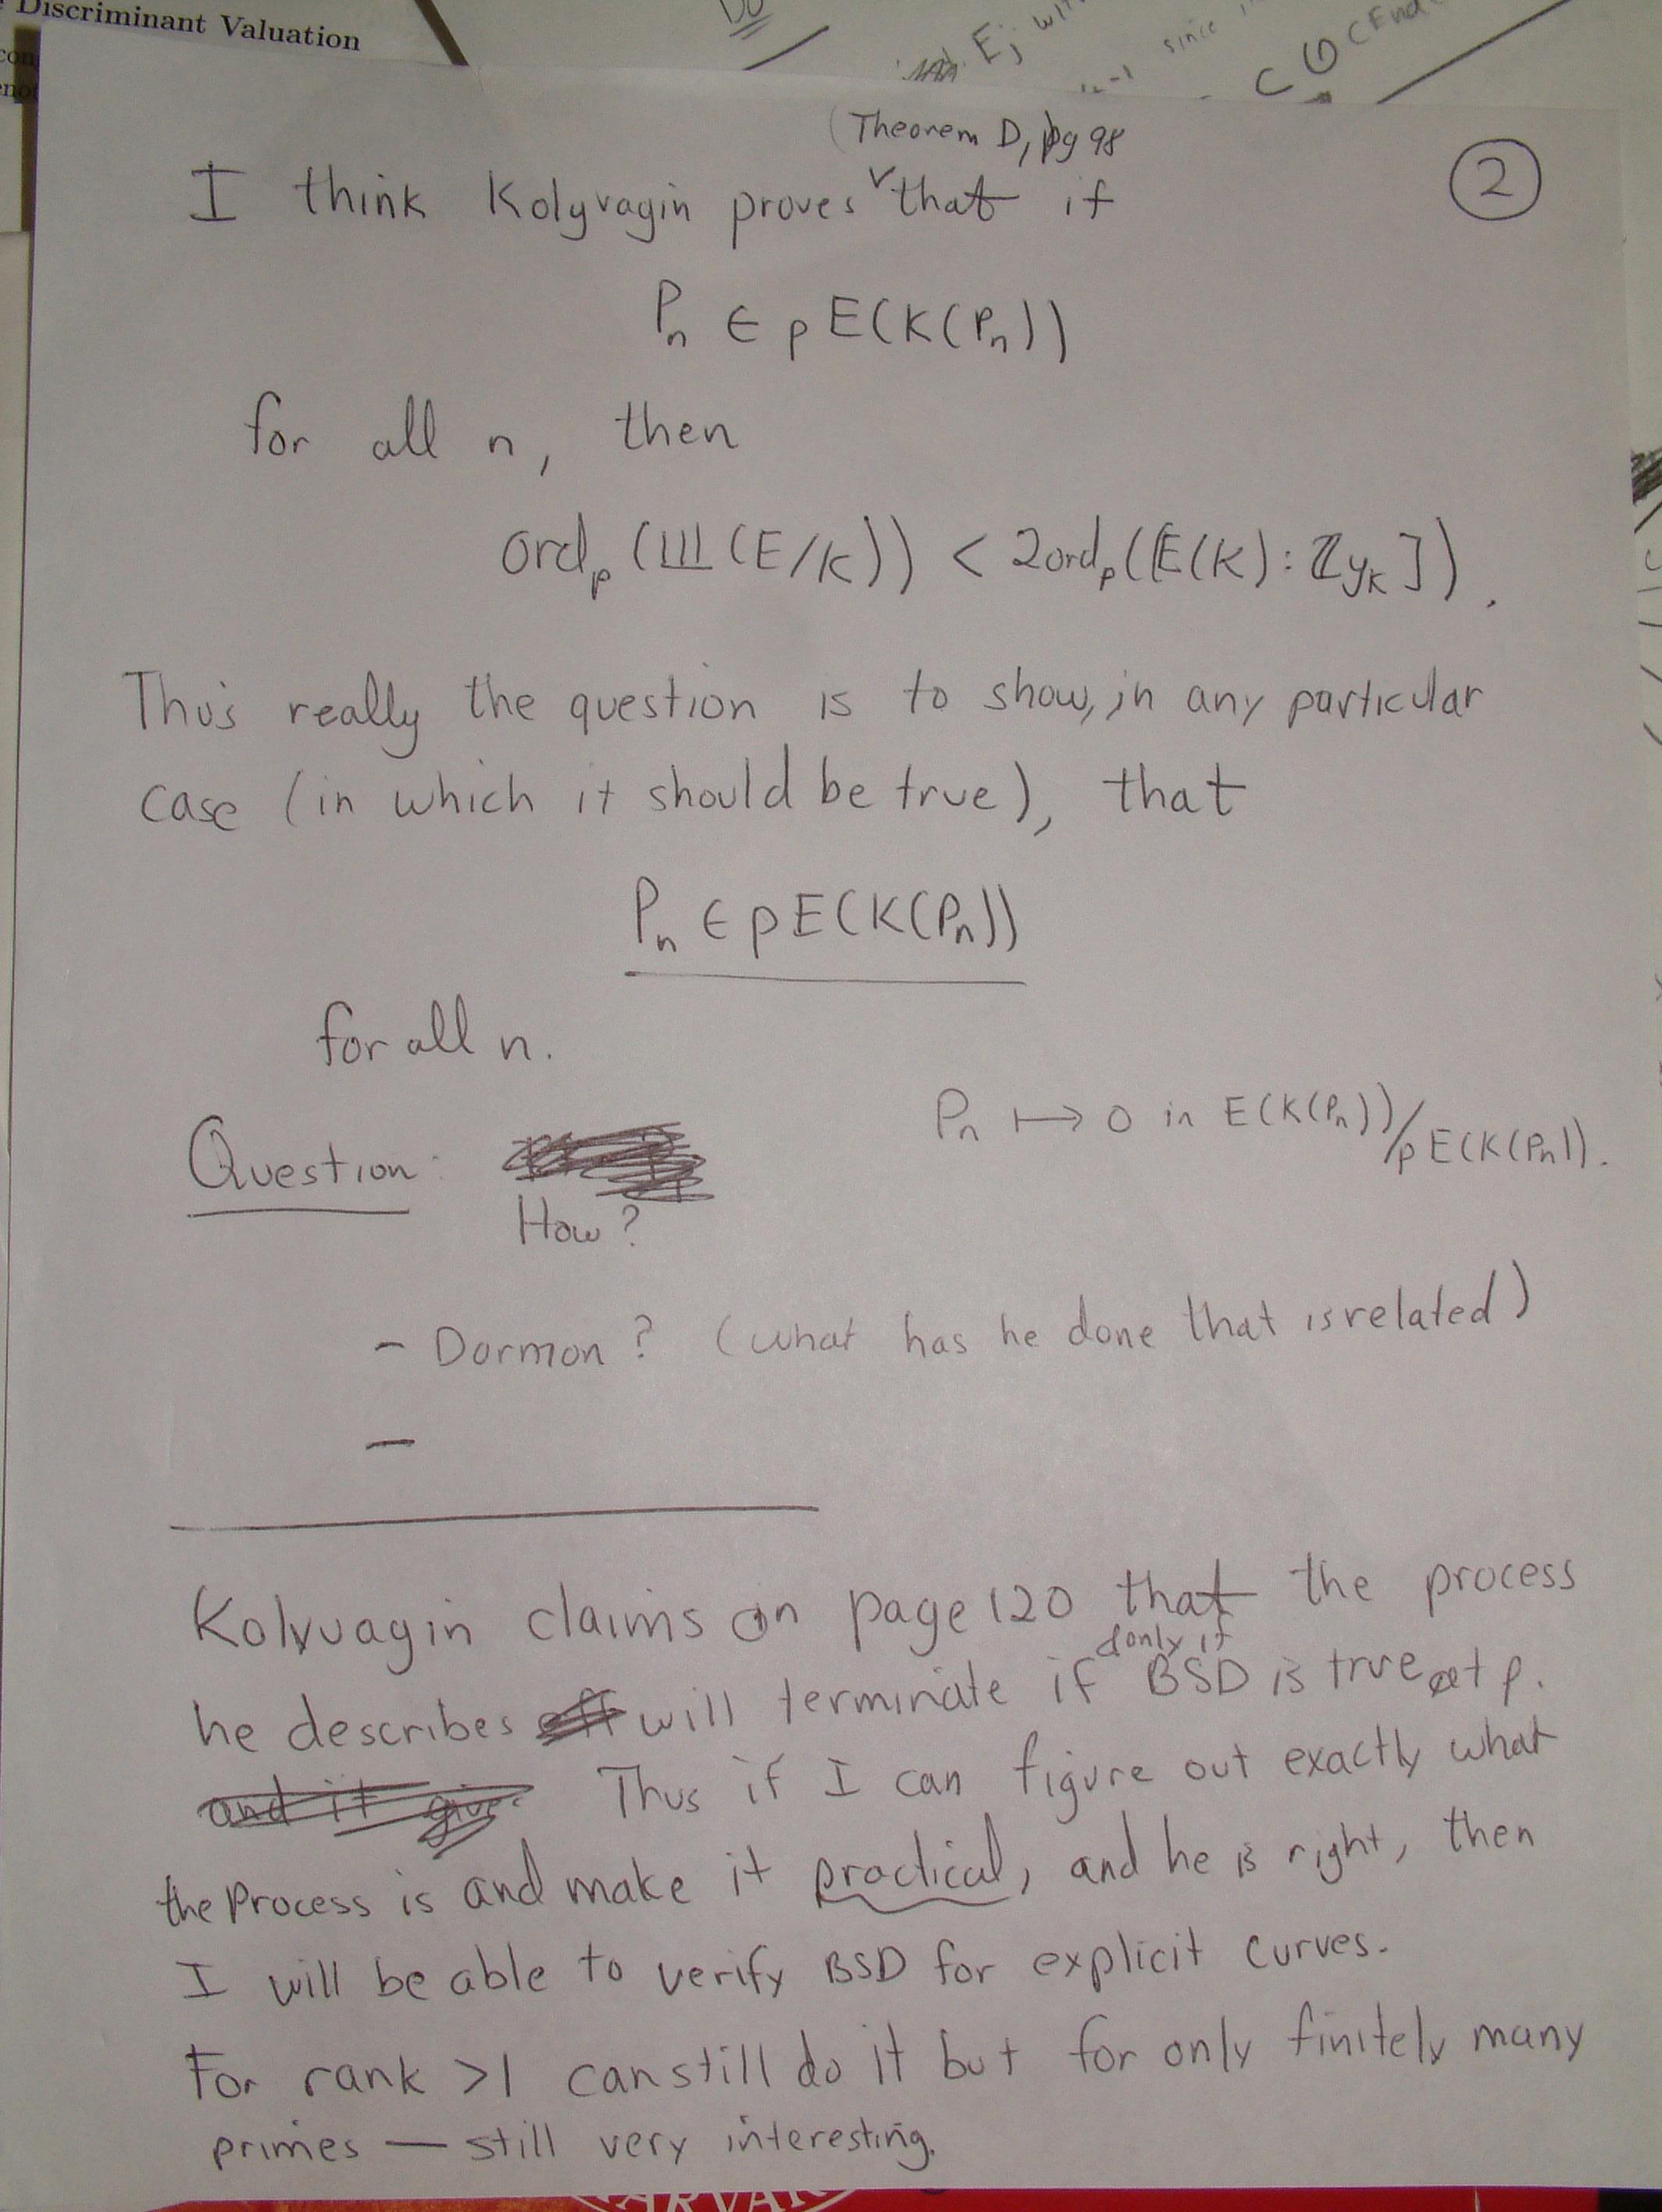 Discriminant Valuation
con
enot
Ej with
since
(Theorem D, pg 98
I think Kolyvagin proves that if
2
Pn ∈ pE(K(Pn))
for all n, then
ordp(Ш(E/K)) < 2ordp([E(K):ℤyK]).
Thus really the question is to show, in any particular
case (in which it should be true), that
Pn ∈ pE(K(Pn))
for all n.
Pn ↦ 0 in E(K(Pn))/pE(K(Pn)).
Question:
How?
- Darmon? (what has he done that is related)
-
Kolyvagin claims on page 120 that the process
&only if
he describes will terminate if BSD is true at p.
and it give Thus if I can figure out exactly what
the process is and make it practical, and he is right, then
I will be able to verify BSD for explicit curves.
For rank >1 can still do it but for only finitely many
primes — still very interesting.
HARVAR